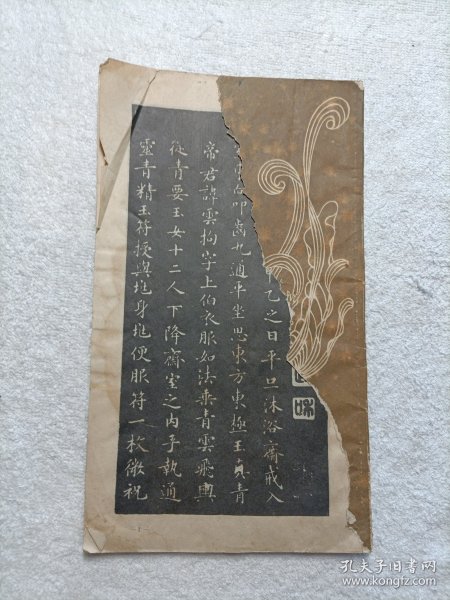 甲乙之日平旦沐浴齋戒入
向叩齒九通平坐思東方東極玉真青
帝君諱雲拘字上伯衣服如法乘青雲飛輿
從青要玉女十二人下降齋室之內手執通
靈青精玉符授與兆身兆便服符一枚微祝
孔夫子旧书网
www.kongfz.com